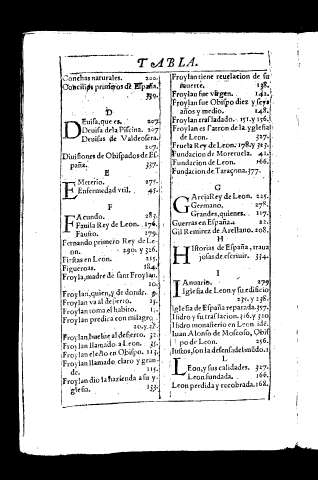 TABLA.
Conchas naturales. 202.
Concilios primeros de España.
339.
D
Deuisa, que es. 207.
Deuisa de la Piscina. 207.
Deuisas de Valdeosera.
207.
Diuisiones de Obispados de Es-
paña. 357.
E
Emeterio. 275.
Enfermedad vtil. 45.
F
Facundo. 283.
Fauila Rey de Leon. 176.
Fausto. 279.
Fernando primero Rey de Le-
on. 290. y 326.
Fiestas en Leon. 215.
Figueroas. 184.
Froyla, madre de sant Froylan.
10.
Froylan, quien, y de donde. 9.
Froylan va al desierto. 23.
Froylan toma el habito. 15.
Froylan predica con milagro.
20. y 28.
Froylan buelue al desierto. 32.
Froylan llamado a Leon. 35.
Froylan electo en Obispo. 113.
Froylan llamado claro y gran-
de. 115.
Froylan dio la hazienda a su y-
glesia. 153.
Froylan tiene reuelacion de su
muerte. 138.
Froylan fue virgen. 142.
Froylan fue Obispo diez y seys
años y medio. 148.
Froylan trasladado. 151. y 156.
Froylan es Patron de la yglesia
de Leon. 327.
Fruela Rey de Leon. 178. y 323.
Fundacion de Moreruela. 42.
Fundacion de Leon. 166.
Fundacion de Taraçona. 377.
G
Garcia Rey de Leon. 225.
Germano. 278.
Grandes, quienes. 117.
Guerras en España. 22.
Gil Ramirez de Arellano. 208.
H
Historias de España, traua
josas de escriuir. 354.
I
Ianuario. 279
Iglesia de Leon y su edificio
231. y 238.
Iglesia de España reparada. 357.
Isidro y su traslacion. 316. y 320
Isidro monasterio en Leon
Iuan Alonso de Moscoso, Obis
po de Leon. 256.
Iustos, son la defensa del mūdo. 1
L
Leon, y sus calidades. 327.
Leon fundada. 166.
Leon perdida y recobrada. 168.